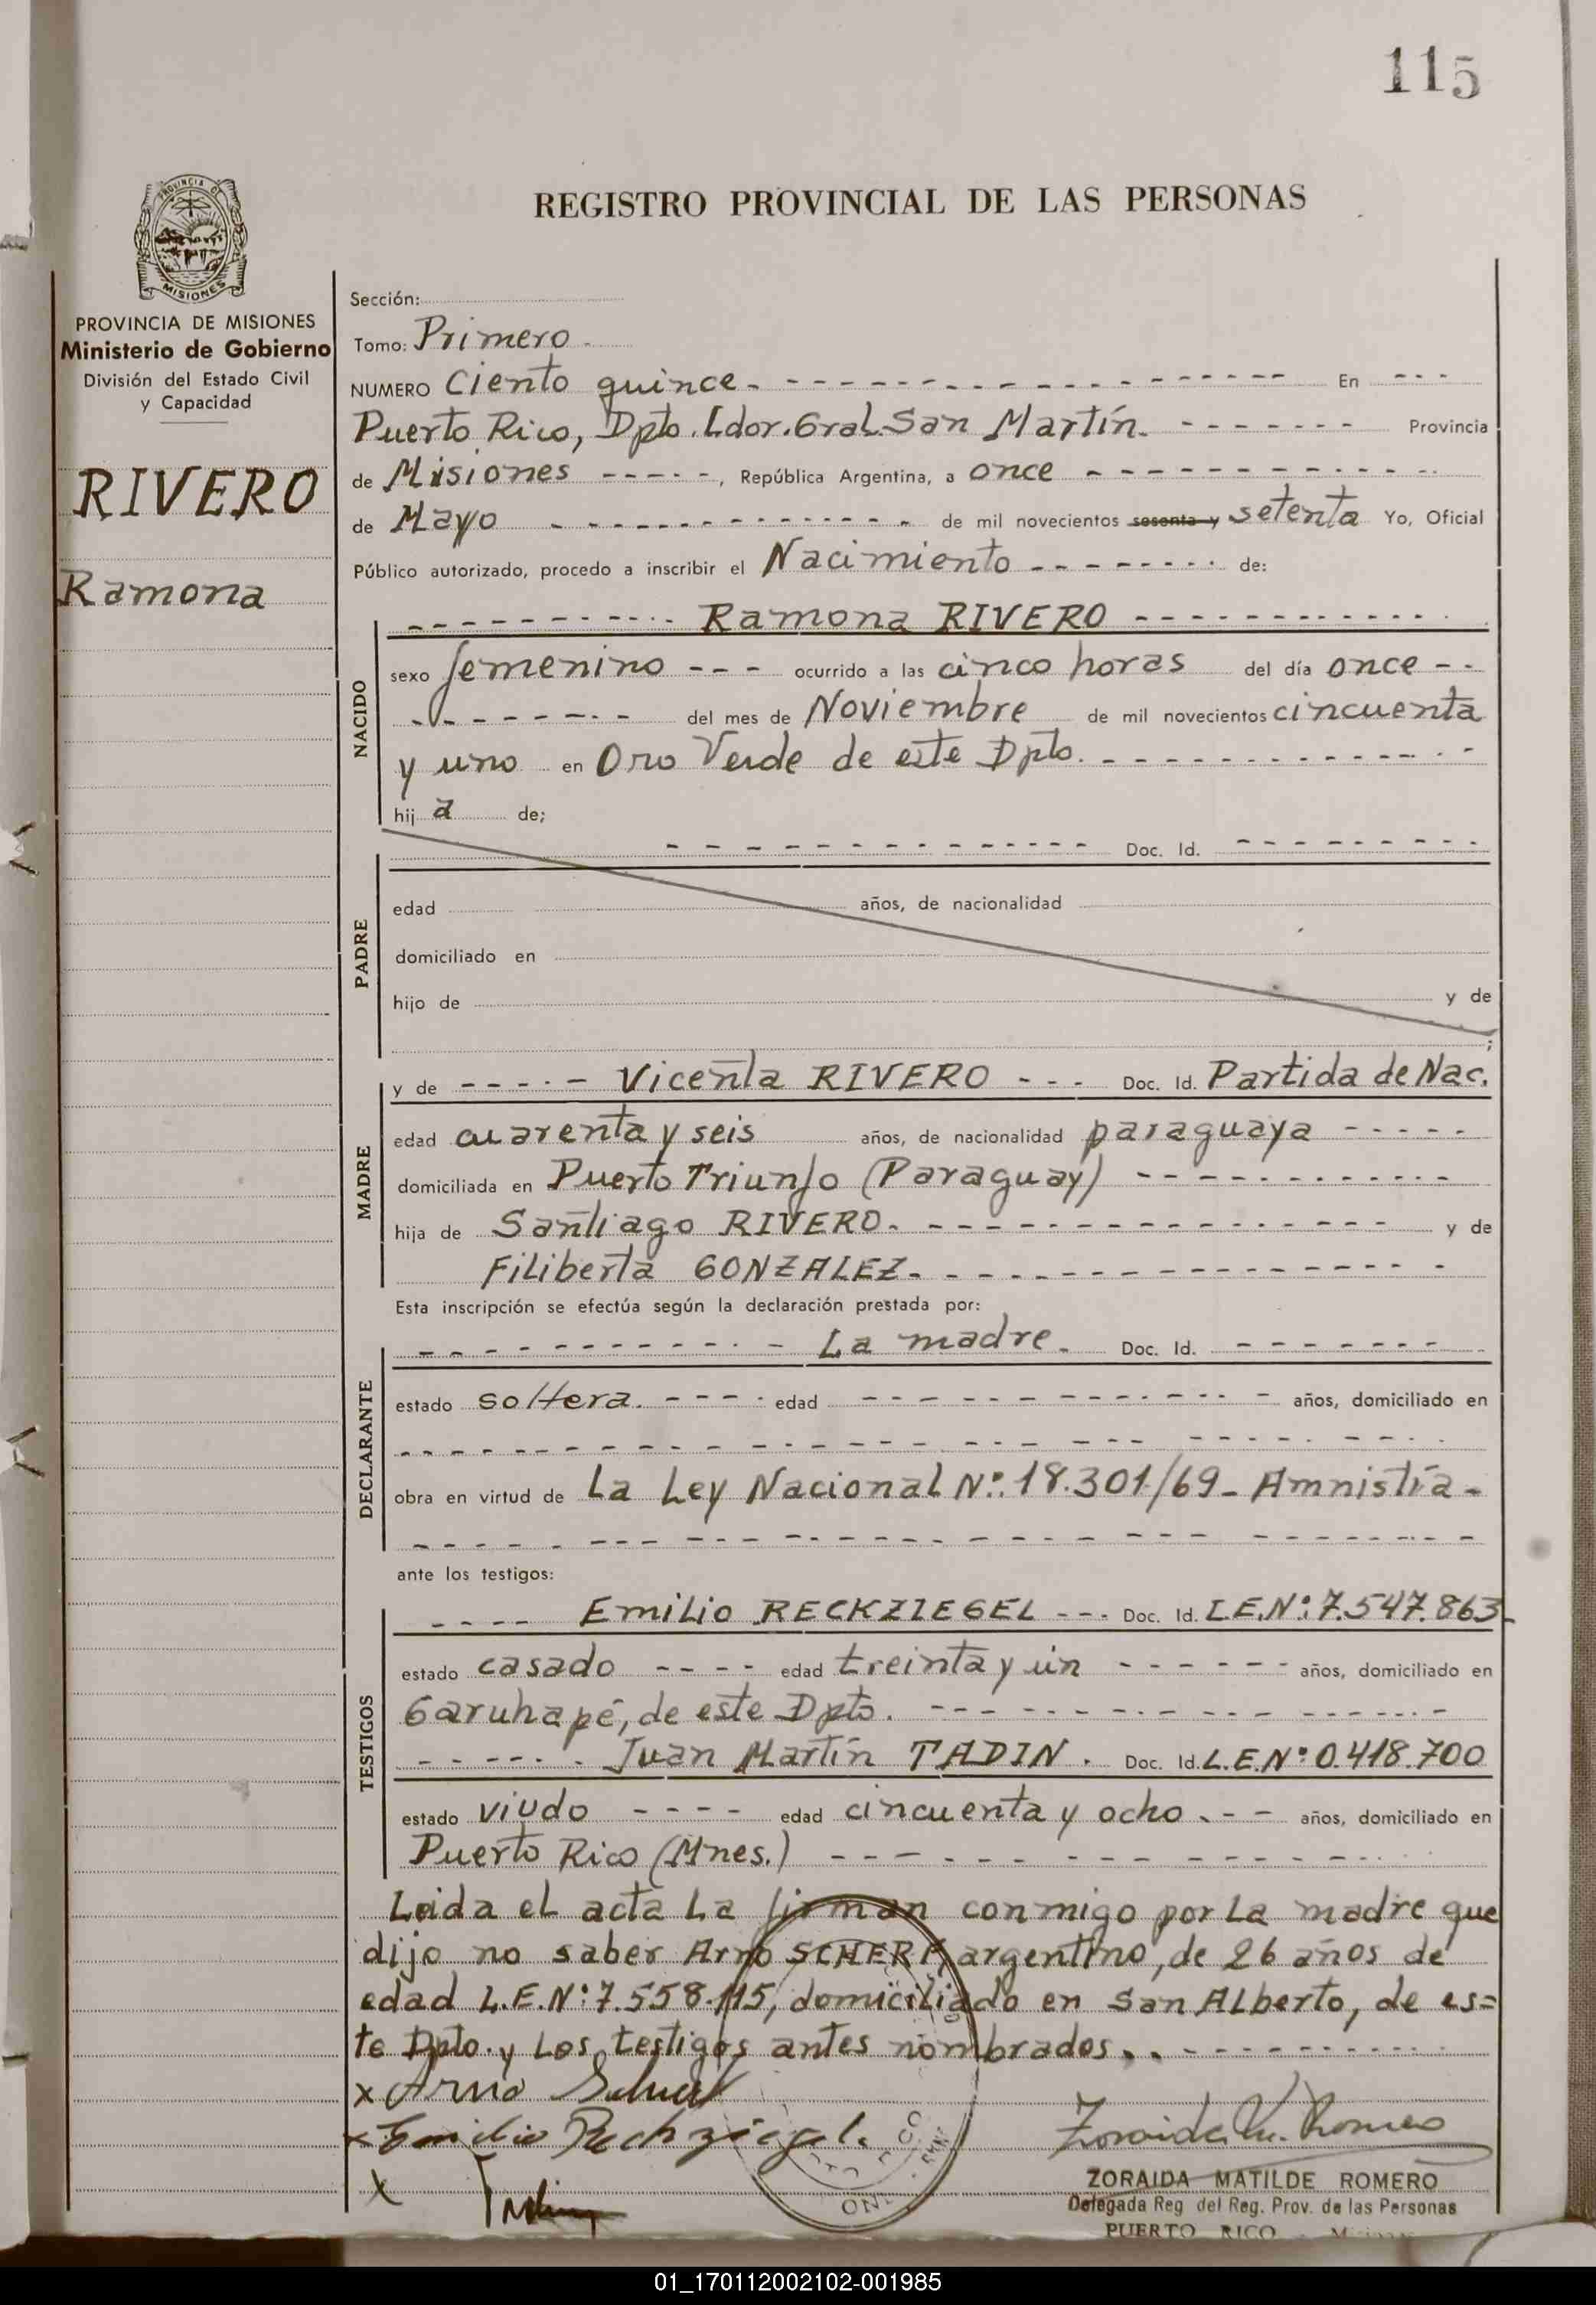 115
REGISTRO PROVINCIAL DE LAS PERSONAS
PROVINCIA DE
MISIONES
PROVINCIA DE MISIONES
Ministerio de Gobierno
División del Estado Civil
y Capacidad
RIVERO
Ramona
Sección:
Tomo: Primero
NUMERO Ciento quince. En
Puerto Rico, Dpto. Ldor. Gral. San Martín. Provincia
de Misiones, República Argentina, a once
de Mayo de mil novecientos sesenta y setenta Yo, Oficial
Público autorizado, procedo a inscribir el Nacimiento de:
Ramona RIVERO
NACIDO
sexo femenino ocurrido a las cinco horas del día once
del mes de Noviembre de mil novecientos cincuenta
y uno en Oro Verde de este Dpto.
hij a de;
Doc. Id.
PADRE
edad años, de nacionalidad
domiciliado en
hijo de y de
;
MADRE
y de Vicenta RIVERO Doc. Id. Partida de Nac.
edad cuarenta y seis años, de nacionalidad paraguaya
domiciliada en Puerto Triunfo (Paraguay)
hija de Santiago RIVERO. y de
Filiberta GONZALEZ.
Esta inscripción se efectúa según la declaración prestada por:
DECLARANTE
La madre. Doc. Id.
estado soltera. edad años, domiciliado en
obra en virtud de La Ley Nacional Nº: 18.301/69- Amnistía-
ante los testigos:
TESTIGOS
Emilio RECKZIEGEL Doc. Id. L.E.Nº: 7.547.863-
estado casado edad treinta y un años, domiciliado en
Garuhapé, de este Dpto.
Juan Martín TADIN. Doc. Id. L.E.Nº: 0.418.700
estado viudo edad cincuenta y ocho. años, domiciliado en
Puerto Rico (Mnes.)
Leida el acta La firman conmigo por La madre que
dijo no saber Arno argentino, de 26 años de
edad L.E.Nº: 7.558.115, domiciliado en San Alberto, de es=
te Dpto. y Los testigos antes nombrados.
x Arno
x Emilio Reckziegel.
x
Zoraida M. Romero
ZORAIDA MATILDE ROMERO
Delegada Reg. del Reg. Prov. de las Personas
PUERTO RICO
01_170112002102-001985